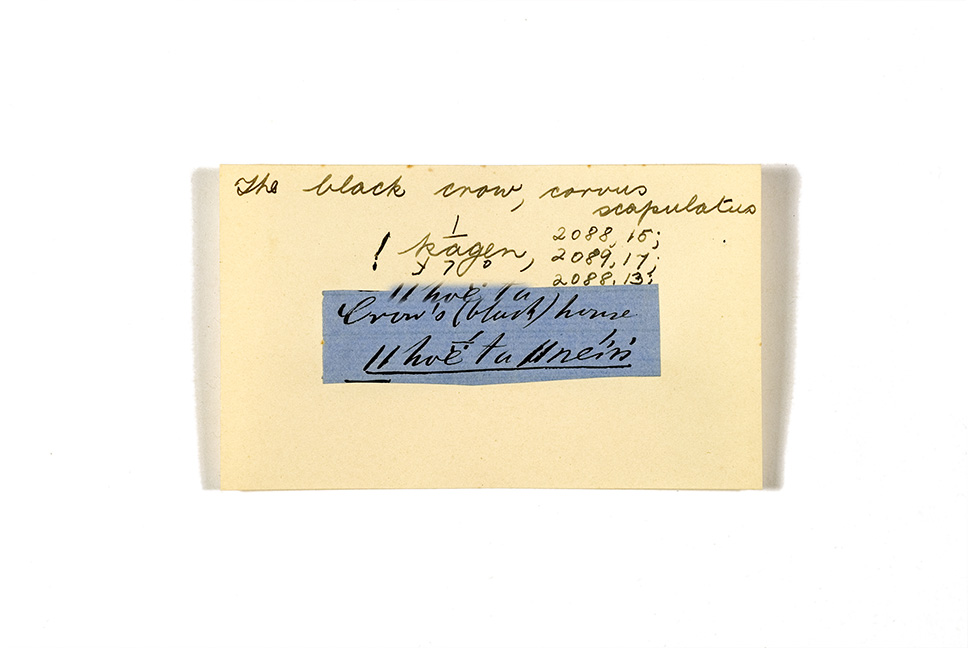 The black crow, corvus
scapulatus
! kāgen, 2088, 15;
2089, 17;
2088, 13;
ǁhoĕ ta
Crow's (black) house
ǁhoĕ ta ǁneiń